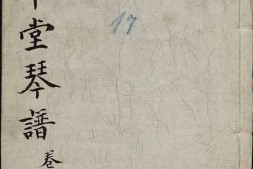 堂琴譜
卷
17